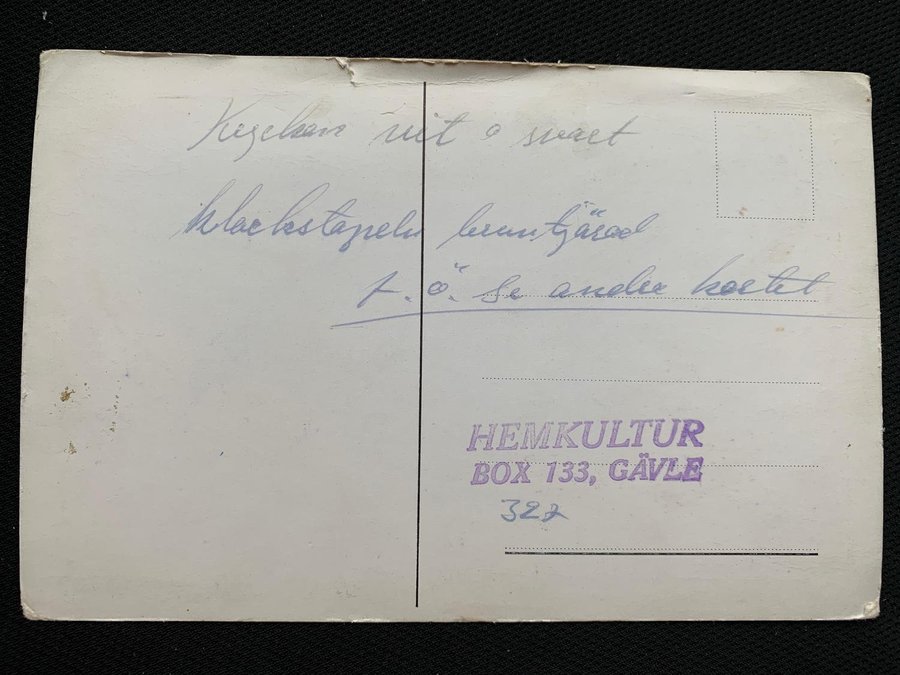 Kyrkan vit o svart
klockstapeln bruntjärad
f. ö. se andra kortet
HEMKULTUR
BOX 133, GÄVLE
327